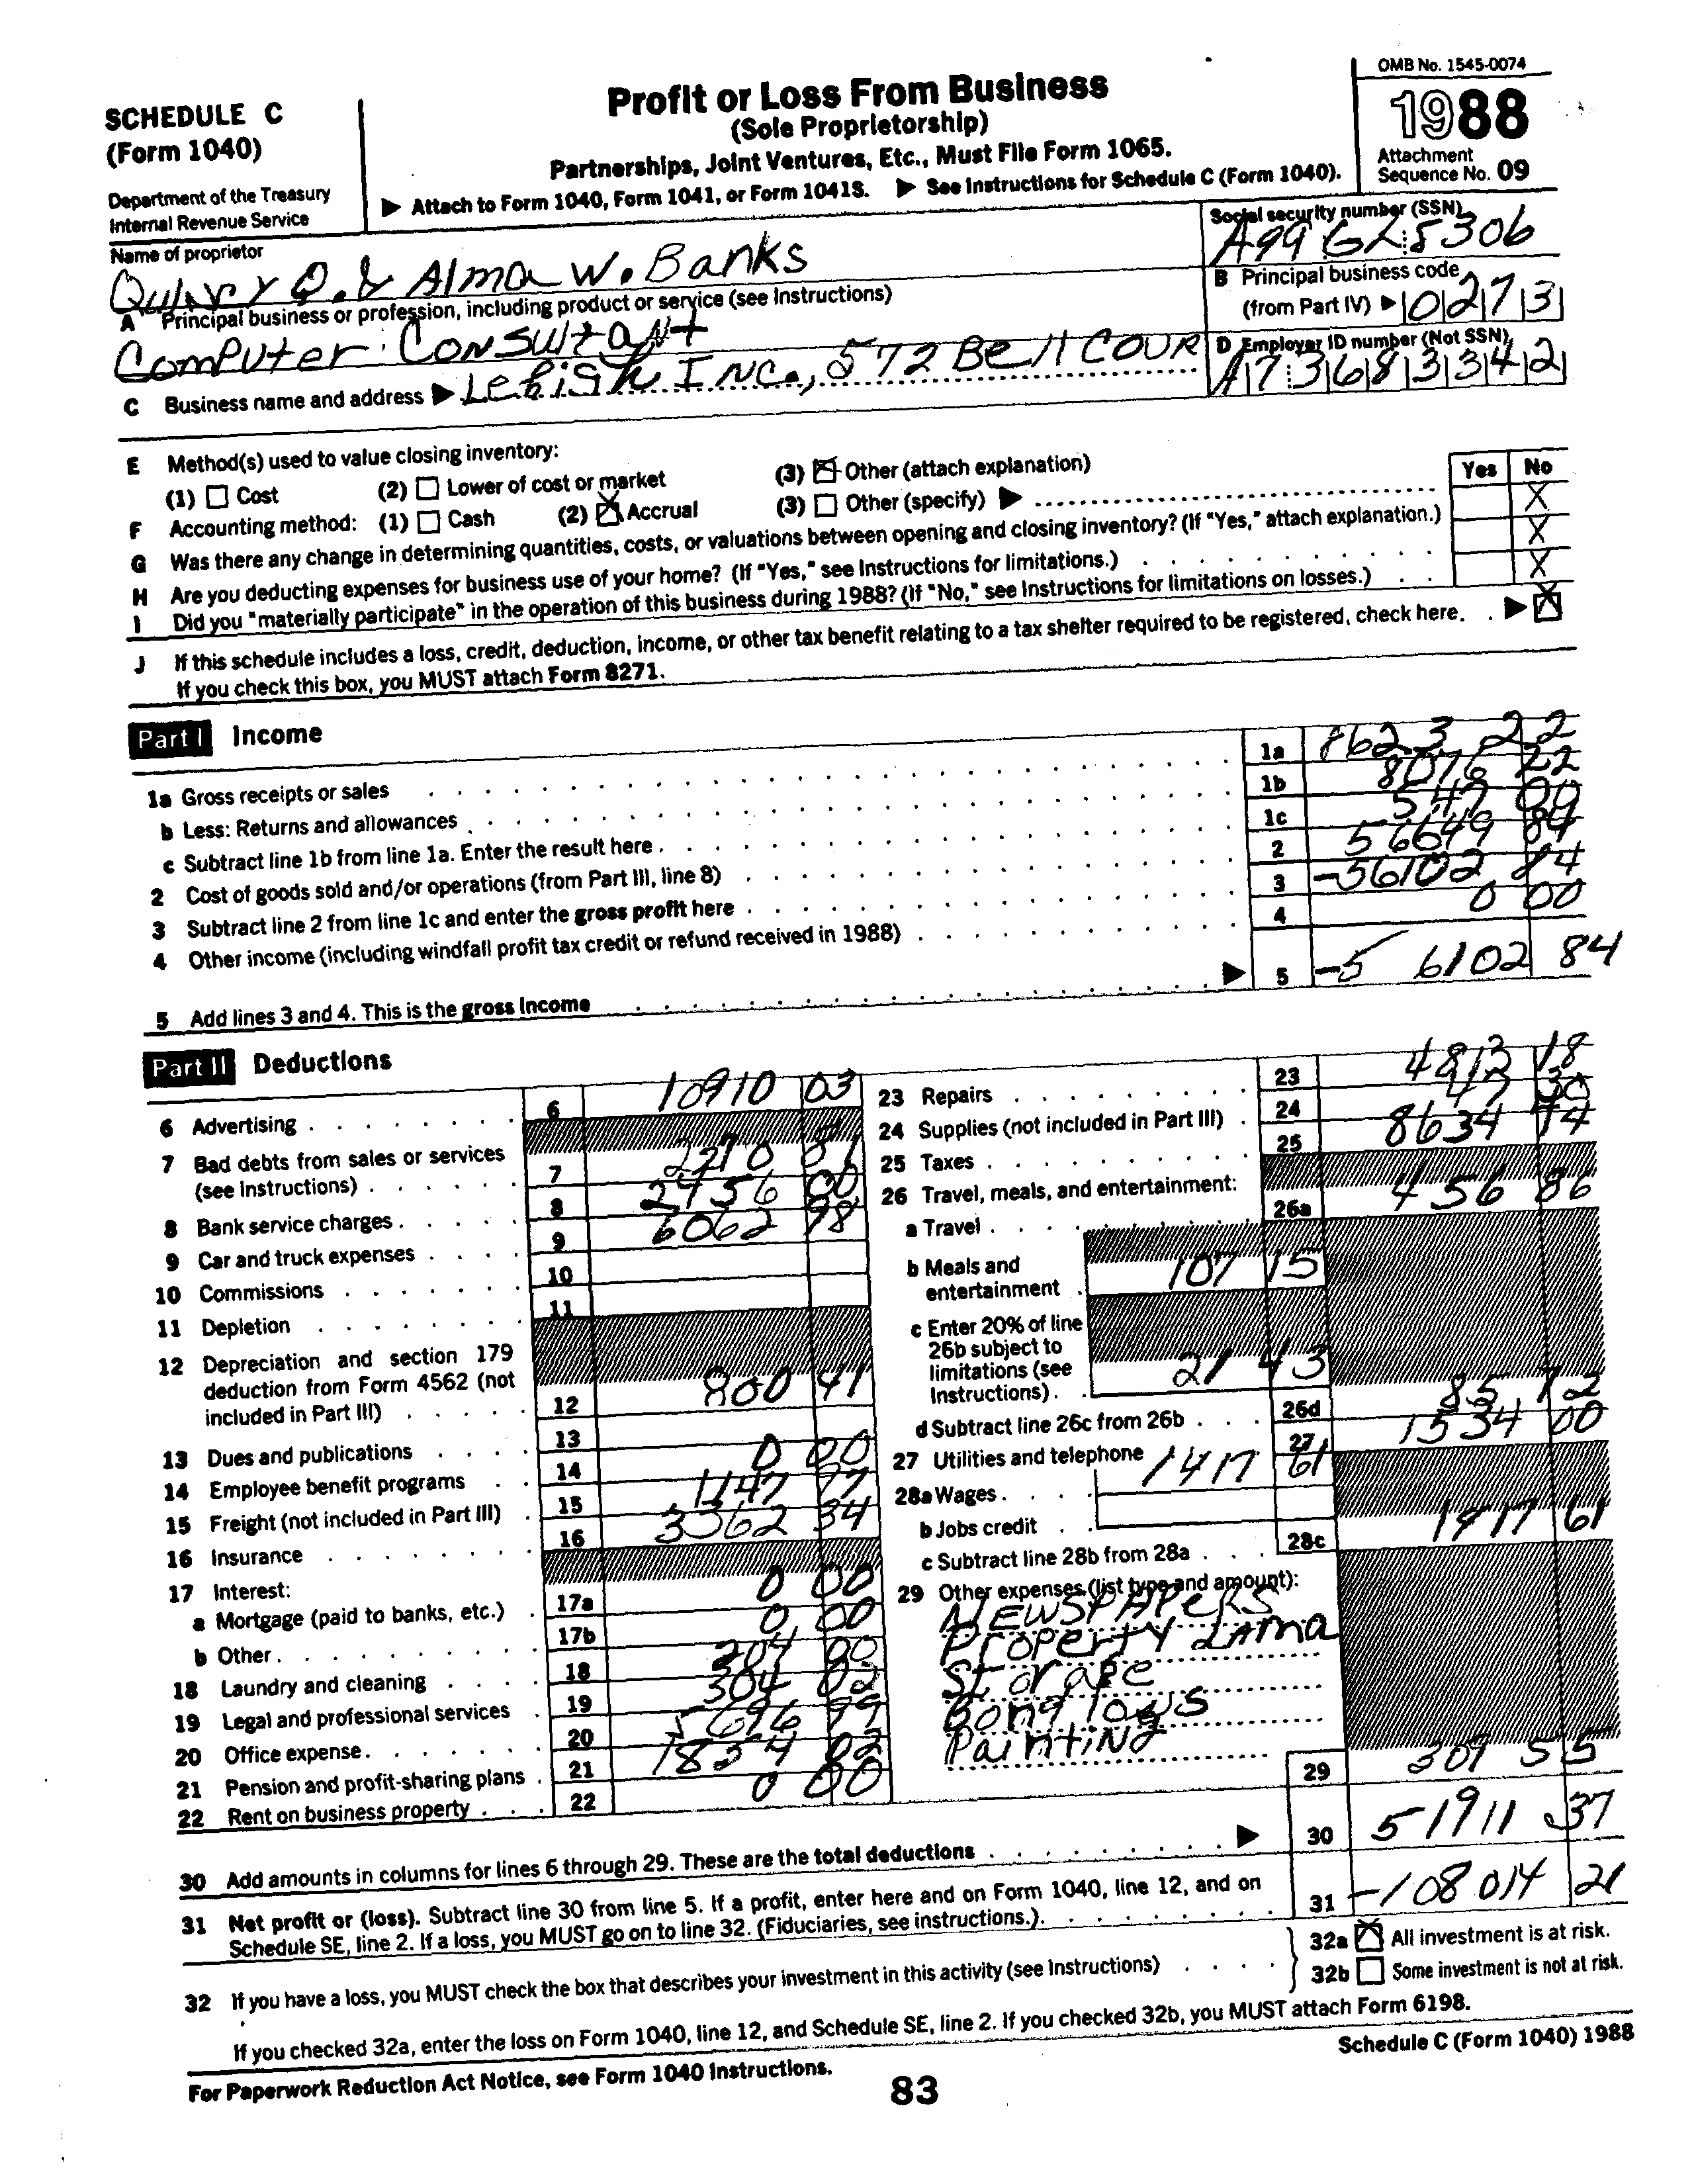 SCHEDULE C
(Form 1040)
Department of the Treasury
Internal Revenue Service
Profit or Loss From Business
(Sole Proprietorship)
Partnerships, Joint Ventures, Etc., Must File Form 1065.
▶ Attach to Form 1040, Form 1041, or Form 1041S. ▶ See Instructions for Schedule C (Form 1040).
OMB No. 1545-0074
1988
Attachment
Sequence No. 09
Name of proprietor
Q. & Alma W. Banks
Social security number (SSN)
A Principal business or profession, including product or service (see Instructions)
Computer Consultant
B Principal business code
(from Part IV) ▶ 0273
C Business name and address ▶ Lehigh Inc., 572 Bell COUR
D Employer ID number (Not SSN)
A73683342
E Method(s) used to value closing inventory:
(1) Cost (2) Lower of cost or market (3) X Other (attach explanation)
F Accounting method: (1) Cash (2) X Accrual (3) Other (specify) ▶
Yes No
G Was there any change in determining quantities, costs, or valuations between opening and closing inventory? (If "Yes," attach explanation.) X
H Are you deducting expenses for business use of your home? (If "Yes," see Instructions for limitations.) X
I Did you "materially participate" in the operation of this business during 1988? (If "No," see Instructions for limitations on losses.) X
J If this schedule includes a loss, credit, deduction, income, or other tax benefit relating to a tax shelter required to be registered, check here. ▶ X
If you check this box, you MUST attach Form 8271.
Part I Income
1a Gross receipts or sales 1a 8623 22
b Less: Returns and allowances 1b 8076 22
c Subtract line 1b from line 1a. Enter the result here 1c 547 00
2 Cost of goods sold and/or operations (from Part III, line 8) 2 56649 84
3 Subtract line 2 from line 1c and enter the gross profit here 3 -56102 84
4 Other income (including windfall profit tax credit or refund received in 1988) 4 0 00
5 Add lines 3 and 4. This is the gross income ▶ 5 -56102 84
Part II Deductions
6 Advertising 6 10910 03
7 Bad debts from sales or services
(see Instructions) 7
8 Bank service charges 8 2456 00
9 Car and truck expenses 9 6062 98
10 Commissions 10
11 Depletion 11
12 Depreciation and section 179
deduction from Form 4562 (not
included in Part III) 12 800 41
13 Dues and publications 13
14 Employee benefit programs 14 0 00
15 Freight (not included in Part III) 15 1147 77
16 Insurance 16 3362 34
17 Interest:
a Mortgage (paid to banks, etc.) 17a 0 00
b Other 17b 0 00
18 Laundry and cleaning 18 204 00
19 Legal and professional services 19 304 02
20 Office expense 20 5696 99
21 Pension and profit-sharing plans 21 1854 02
22 Rent on business property 22 0 00
23 Repairs 23 4813 18
24 Supplies (not included in Part III) 24 47 30
25 Taxes 25 8634 74
26 Travel, meals, and entertainment:
a Travel 26a 456 86
b Meals and
entertainment 107 15
c Enter 20% of line
26b subject to
limitations (see
Instructions) 21 43
d Subtract line 26c from 26b 26d 85 72
27 Utilities and telephone 27 1534 00
28a Wages 1417 61
b Jobs credit
c Subtract line 28b from 28a 28c 1417 61
29 Other expenses (list type and amount):
NEWSPAPERS
Property
Storage
Painting
29 309 55
30 Add amounts in columns for lines 6 through 29. These are the total deductions ▶ 30 51911.37
31 Net profit or (loss). Subtract line 30 from line 5. If a profit, enter here and on Form 1040, line 12, and on
Schedule SE, line 2. If a loss, you MUST go on to line 32. (Fiduciaries, see instructions.) 31 -108014 21
32 If you have a loss, you MUST check the box that describes your investment in this activity (see Instructions)
32a X All investment is at risk.
32b Some investment is not at risk.
If you checked 32a, enter the loss on Form 1040, line 12, and Schedule SE, line 2. If you checked 32b, you MUST attach Form 6198.
For Paperwork Reduction Act Notice, see Form 1040 Instructions.
Schedule C (Form 1040) 1988
83